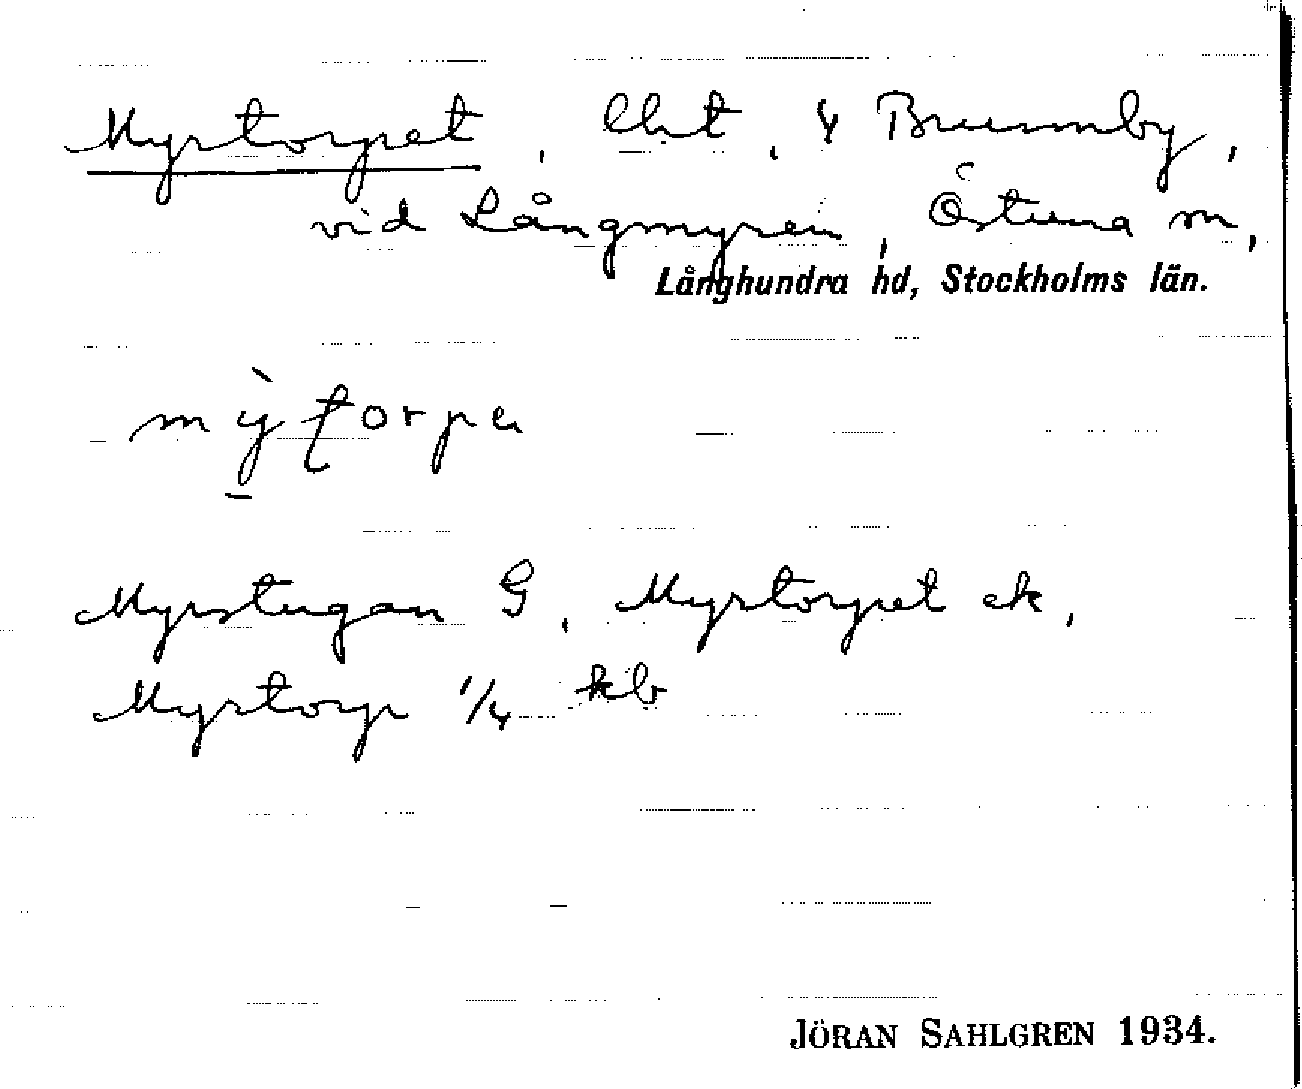 Myrtorpet, lht, u Brunnby,
vid Långmyren, Östuna sn,
Långhundra hd, Stockholms län.
mỳtorpe
Myrstugan G, Myrtorpet ek,
Myrtorp 1/4 kb
JÖRAN SAHLGREN 1934.